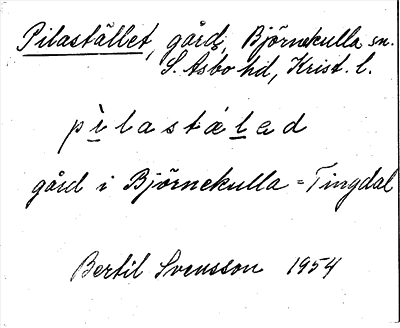 Pilastället, gård, Björnekulla sn.
S. Åsbo hd, Krist. l.
pìlastálad
gård i Björnekulla = Tingdal
Bertil Svensson 1954